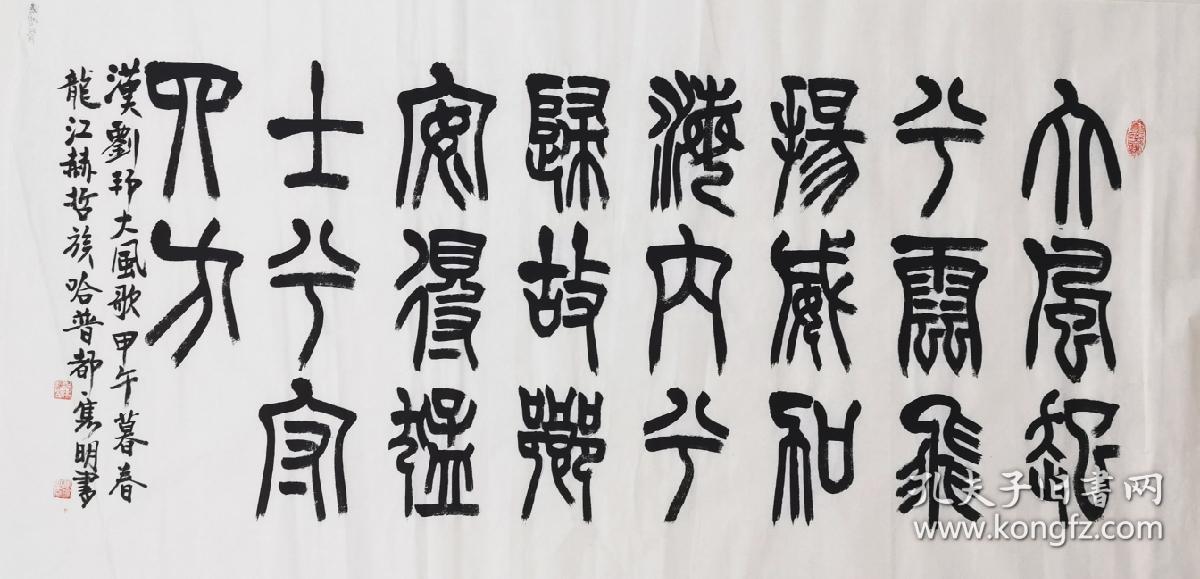 大風起
兮雲飛
揚威加
海內兮
歸故鄉
安得猛
士兮守
四方
漢劉邦大風歌甲午暮春
龍江赫哲族哈普都·雋明書
孔夫子旧書网
www.kongfz.com